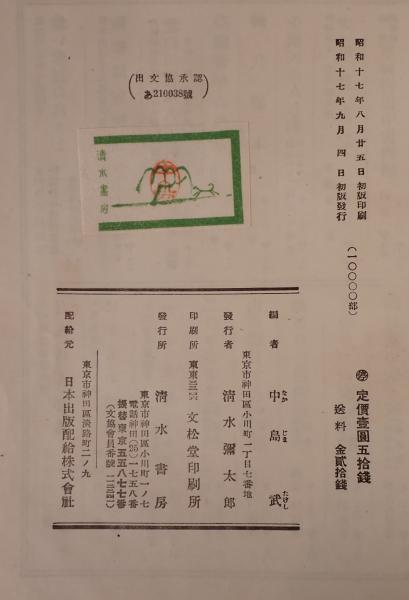 昭和十七年八月廿五日初版印刷
昭和十七年九月 四 日初版發行
(一〇〇〇〇部)
定價壹圓五拾錢
送料 金貳拾錢
出文協承認
あ210038號
淸水書房
編者 中島武
なか じま たけし
東京市神田區小川町一丁目七番地
發行者 淸水彌太郎
印刷所 文松堂印刷所
東京市神田區小川町一ノ七
發行所 淸水書房
電話神田(25)一七五八番
振替東京五五八七七番
東京市神田區淡路町二ノ九
配給元 日本出版配給株式會社